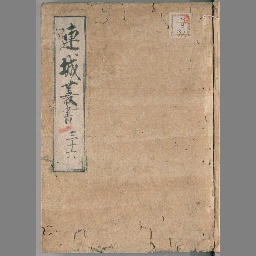 連城叢書 三十六